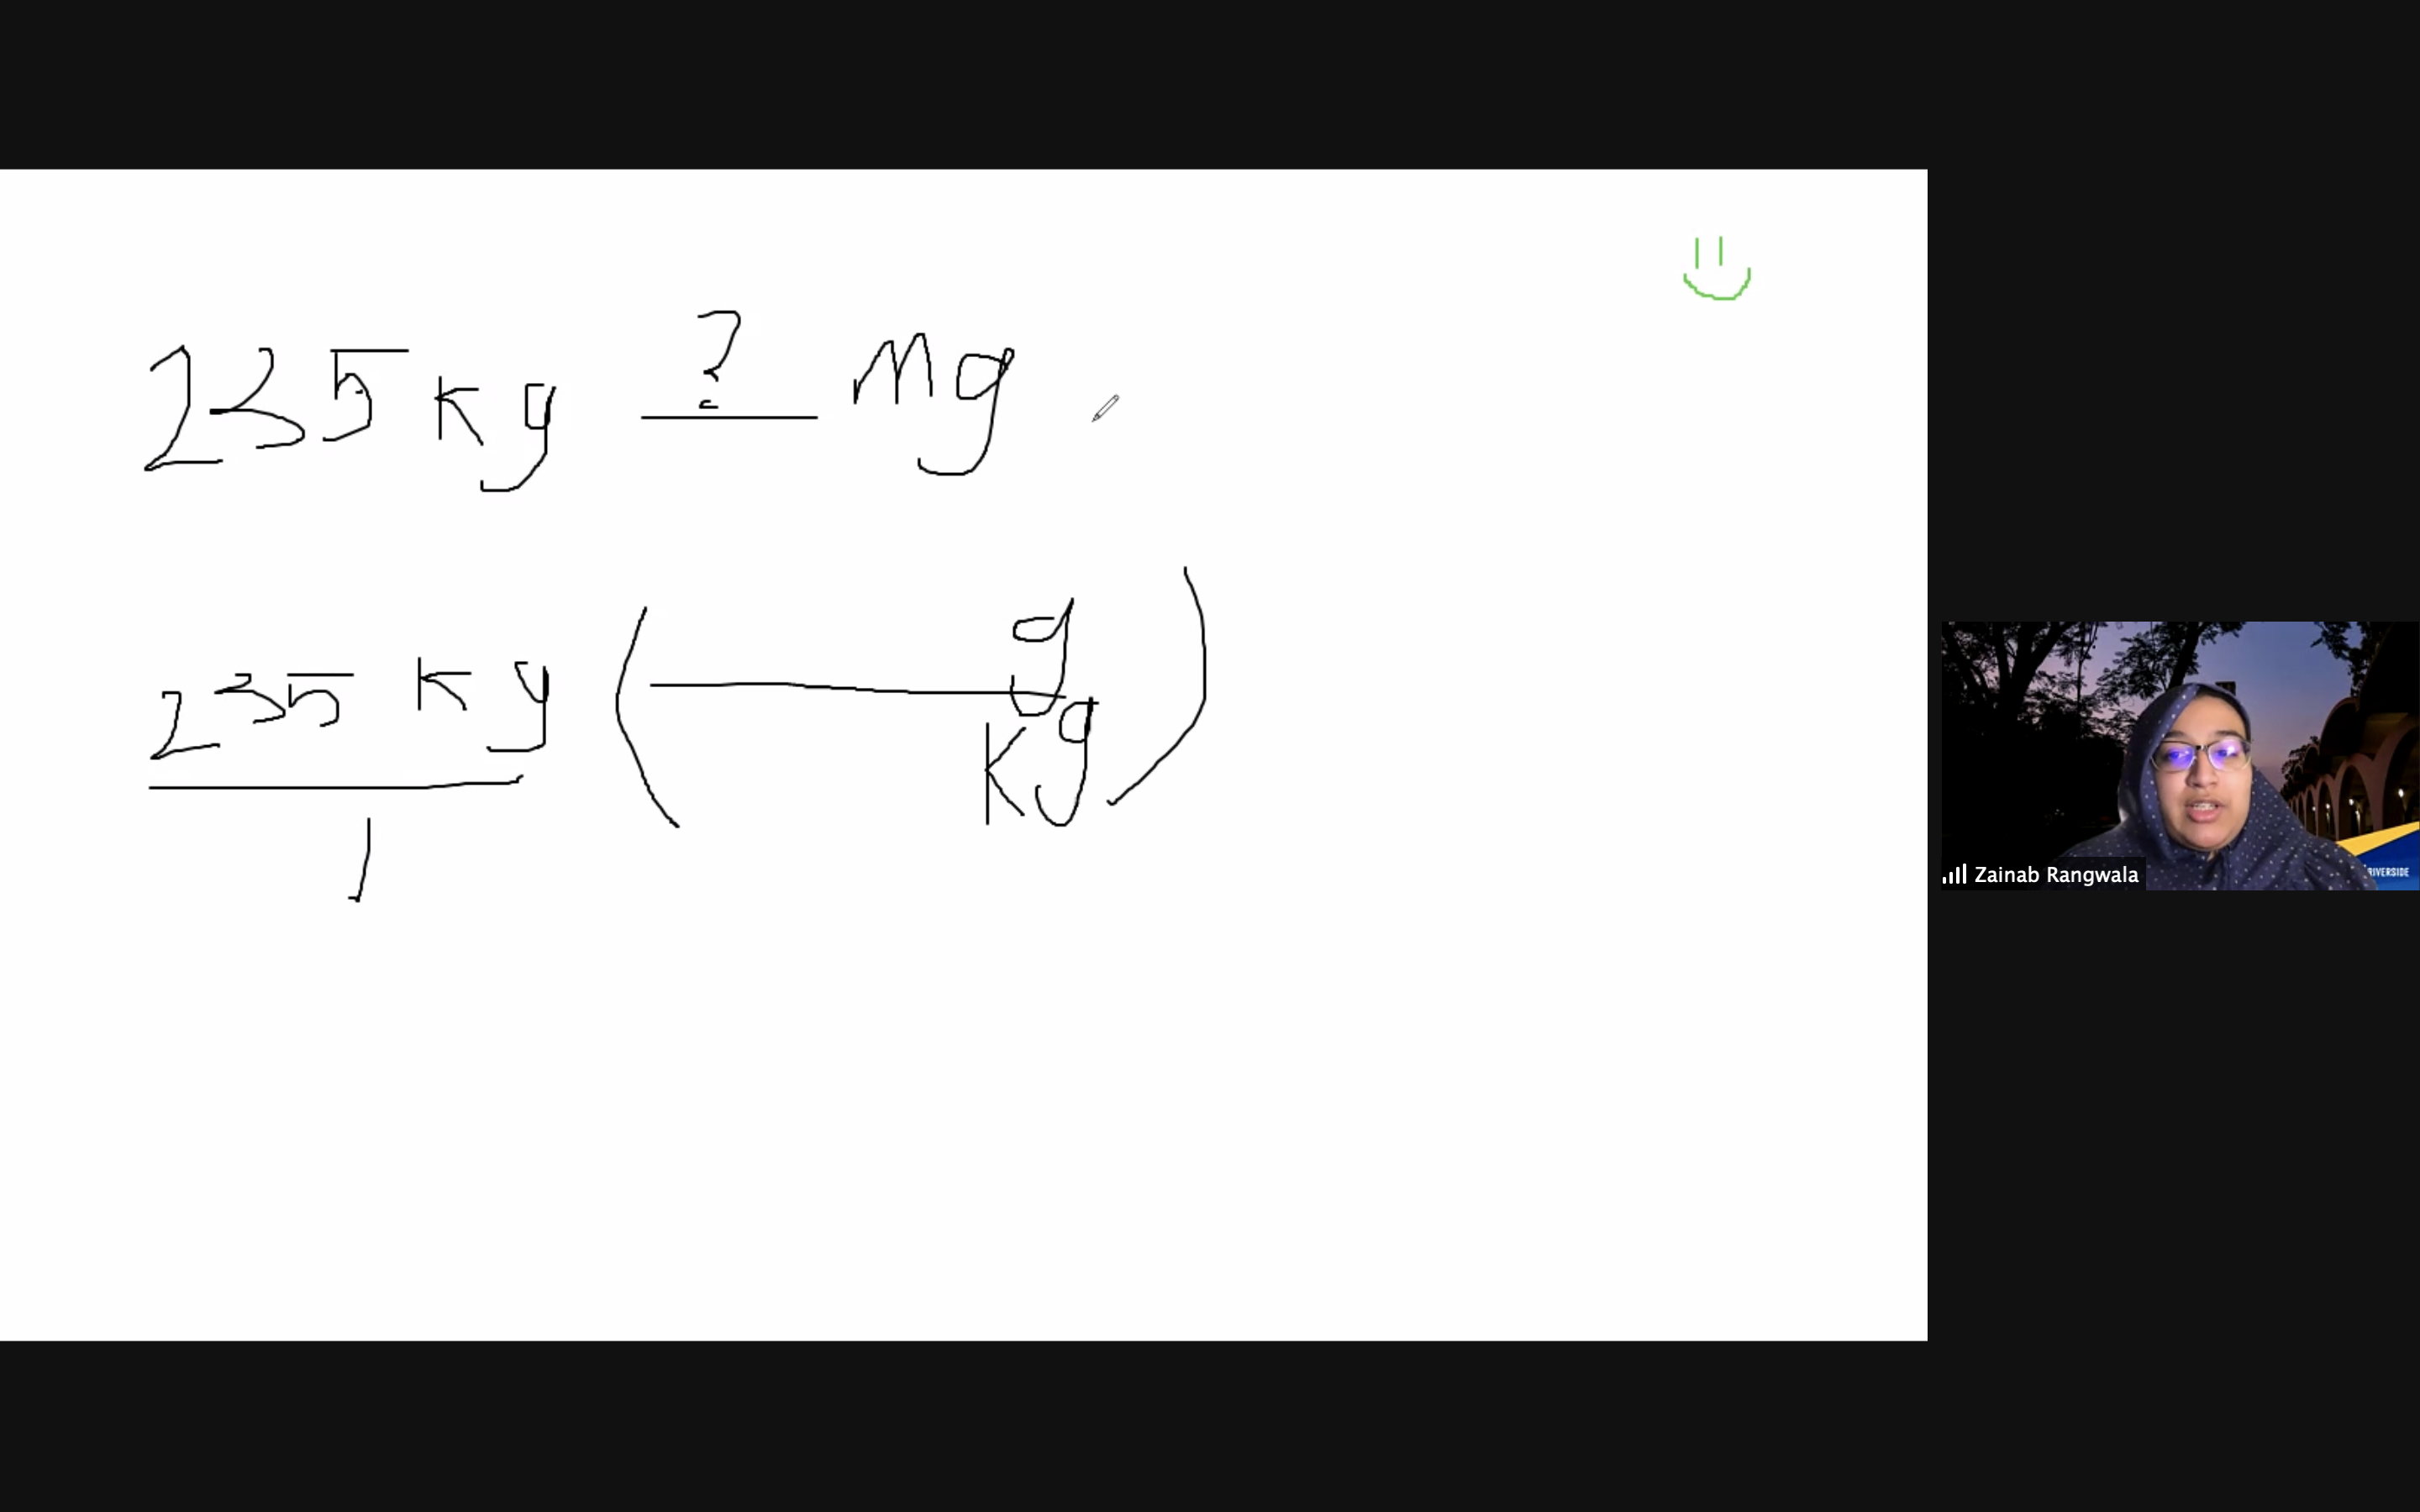 235 kg ? mg
235 kg ( g
1 kg )
Zainab Rangwala
RIVERSIDE